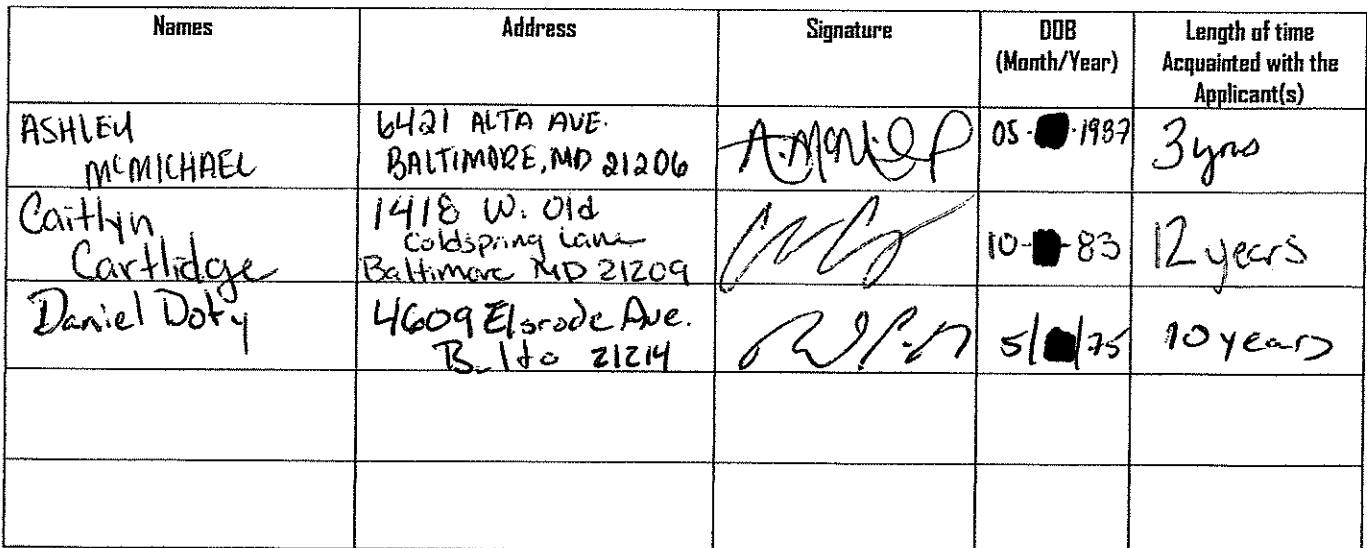 Names Address Signature DOB (Month/Year) Length of time Acquainted with the Applicant(s)
ASHLEY McMICHAEL
6421 ALTA AVE.
BALTIMORE, MD 21206
05- -1987
3 yrs
Caitlyn
Cartlidge
1418 W. Old
Coldspring Lane
Baltimore MD 21209
10- -83
12 years
Daniel Doty
4609 Elsrode Ave.
Balto 21214
5/ /75
10 years